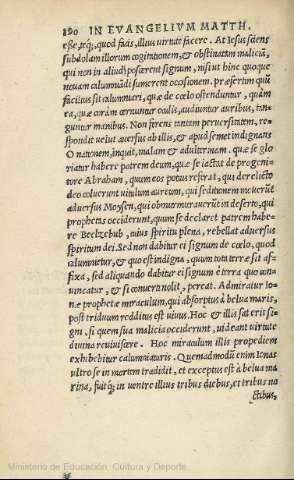 180 IN EVANGELIVM MATTH.
esse, teq́; quod facis, illius virtute facere. At Iesus sciens
subdolam illorum cogitationem, & obstinatam maliciã,
qui non in aliud poscerent signum, nisi ut hinc quoque
nouam calumniãdi sumerent occasionem. præsertim quũ
facilius sit calumniari, quæ de cœlo ostenduntur, quàm
ea, quæ coràm cernuntur oculis, audiuntur auribus, tan-
guntur manibus. Non ferens tantam peruersitatem, re-
spondit velut auersus ab illis, & apud semet indignans
O nationem, inquit, malam & adulteram. quæ se glo
riatur habere patrem deum, quæ se iactat de progeni-
tore Abraham, quum eos potius referat, qui derelicto
deo coluerunt vitulum aureum, qui seditionem mouerũt
aduersus Moysen, qui obmurmurauerũt in deserto, qui
prophetas occiderunt, quum se declaret patrem habe-
re Beelzebub, cuius spiritu plena, rebellat aduersus
spiritum dei. Sed non dabitur ei signum de cœlo, quod
calumnietur, & quo est indigna, quum tota terræ sit af-
fixa, sed aliquando dabitur ei signum è terra quo conu-
uncatur, & si conuerti nolit, pereat. Admiratur Io-
næ prophetæ miraculum, qui absorptus à belua maris,
post triduum redditus est viuus. Hoc & illis sat erit si-
gni. si quem sua malicia occiderunt, uideant virtute
diuina reuiuiscere. Hoc miraculum illis propediem
exhibebitur calumniaturis. Quemadmodũ enim Ionas
ultro se in mortem tradidit, et exceptus est à belua ma
rina, fuitq́; in uentre illius tribus diebus, et tribus no
ctibus,
Ministerio de Educación, Cultura y Deporte